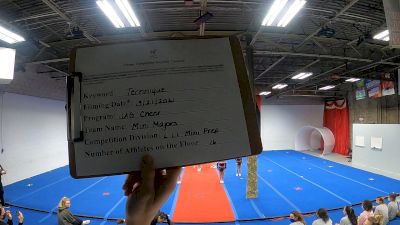 Keyword: Technique
Filming Date: 3/21/2021
Program: Cheer
Team Name: Mini Majors
Competition Division: L 1.1 Mini Prep
Number of Athletes on the Floor: 16